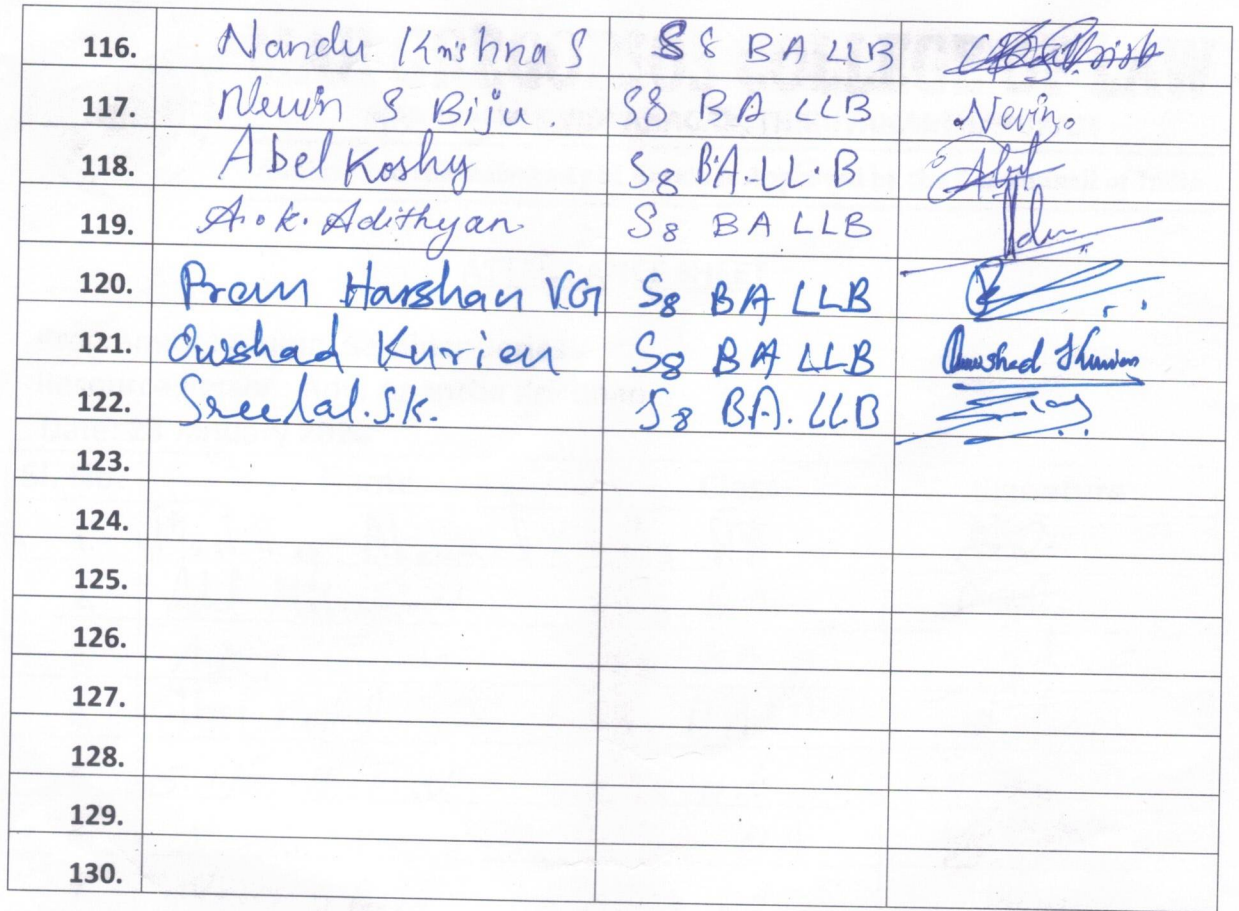 116. Nandu Krishna S S8 BA LLB
117. Nevin S Biju. S8 BA LLB Nevin.
118. Abel Koshy S8 BA.LL.B Abel
119. A.K. Adithyan S8 BA LLB
120. Prem Harshan VG S8 BA LLB
121. Owshad Kurien S8 BA LLB Owshad Kurien
122. Sreelal.S.K. S8 BA. LLB
123.
124.
125.
126.
127.
128.
129.
130.